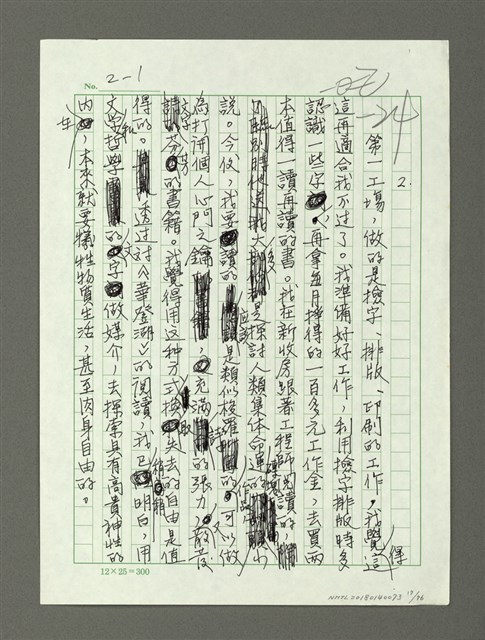 No. 2-1
2.
第一工場，做的是撿字、排版、印刷的工作，我覺得這
這再適合我不过了。我準備好好工作，利用撿字排版時多
認識一些字，再拿每月掙得的一百多元工作金，去買兩
本值得一讀再讀的書。我在新收房跟著工程師閱讀的，
都是探討人類集体命運的
說。今後，我要讀的應該是類似梭羅的，可以做
為打開個人心門之鑰，充滿詩的張力，散發
文字芬芳的書籍。我覺得用这种方式換取失去的自由是值
得的。透过对《華登湖》的閱讀，我已稍稍明白，用
文學和哲學的文字做媒介，去探索具有高貴神性的
內在，本來就要犧牲物質生活，甚至肉身自由的。
12×25=300
NMTL20180140073 17/36